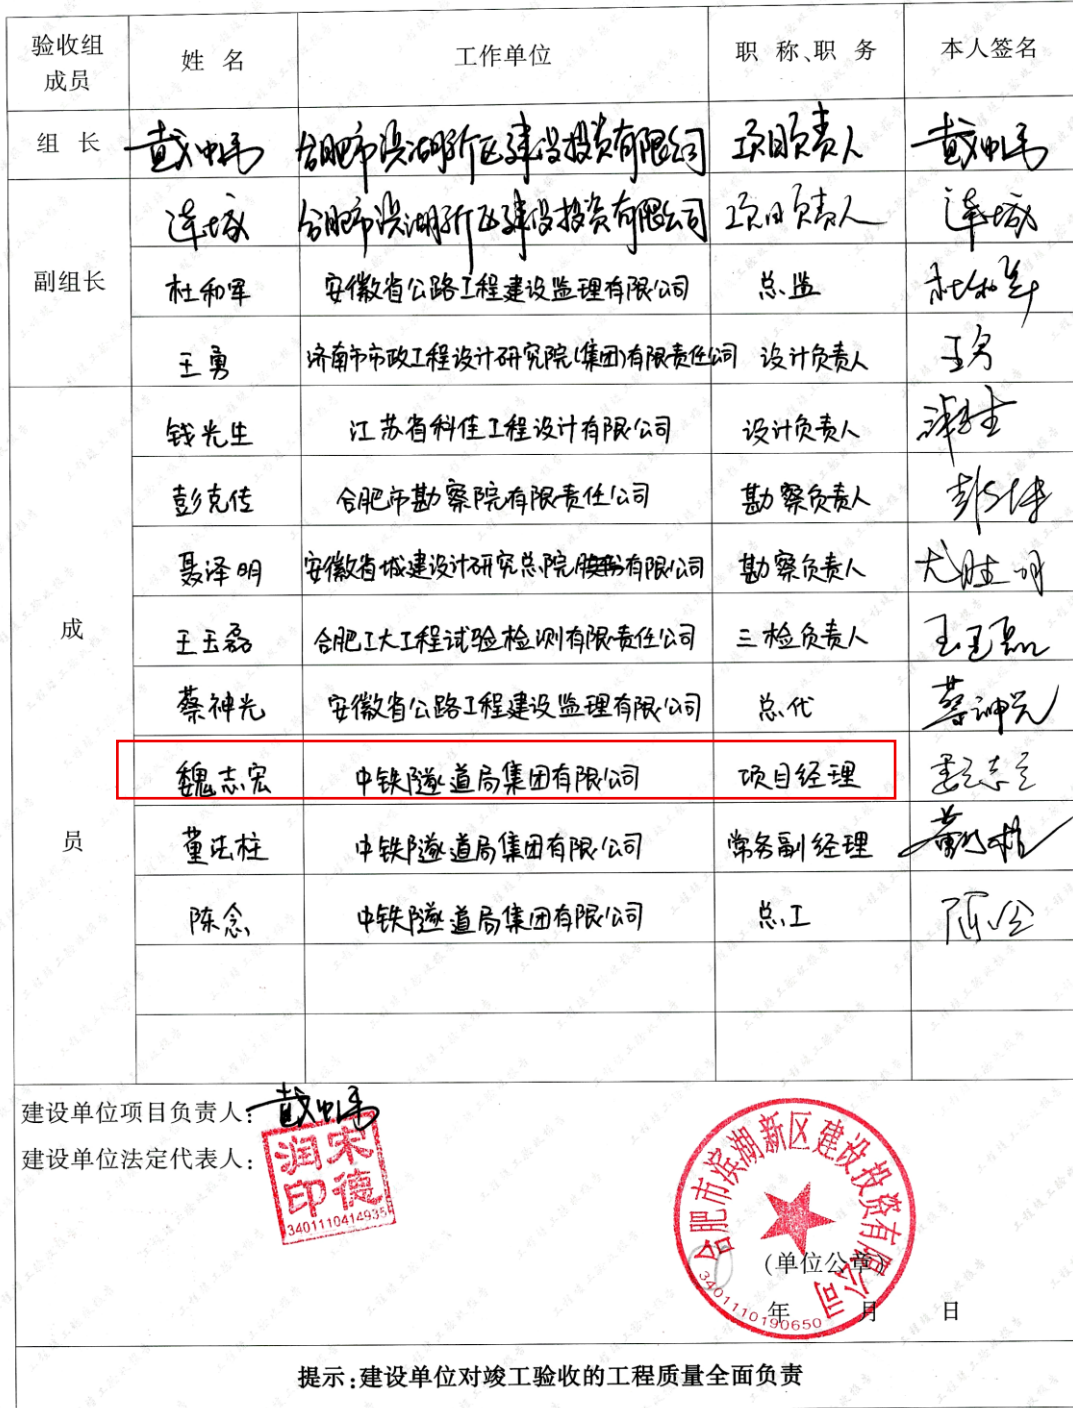 验收组成员 姓 名 工作单位 职 称、职 务 本人签名
组 长 戴中伟 合肥市滨湖新区建设投资有限公司 项目负责人 戴中伟
副组长
连城 合肥市滨湖新区建设投资有限公司 项目负责人 连城
杜和军 安徽省公路工程建设监理有限公司 总监 杜和军
王勇 济南市市政工程设计研究院(集团)有限责任公司 设计负责人 王勇
成员
钱光生 江苏省科佳工程设计有限公司 设计负责人
彭克传 合肥市勘察院有限责任公司 勘察负责人
聂泽明 安徽省城建设计研究总院股份有限公司 勘察负责人
王玉磊 合肥工大工程试验检测有限责任公司 三检负责人 王玉磊
蔡神光 安徽省公路工程建设监理有限公司 总代 蔡神光
魏志宏 中铁隧道局集团有限公司 项目经理 魏志宏
董法柱 中铁隧道局集团有限公司 常务副经理
陈念 中铁隧道局集团有限公司 总工 陈念
建设单位项目负责人: 戴中伟
建设单位法定代表人:
宋德润印
3401110414935
合肥市滨湖新区建设投资有限公司
3401110190650
(单位公章)
年 月 日
提示:建设单位对竣工验收的工程质量全面负责